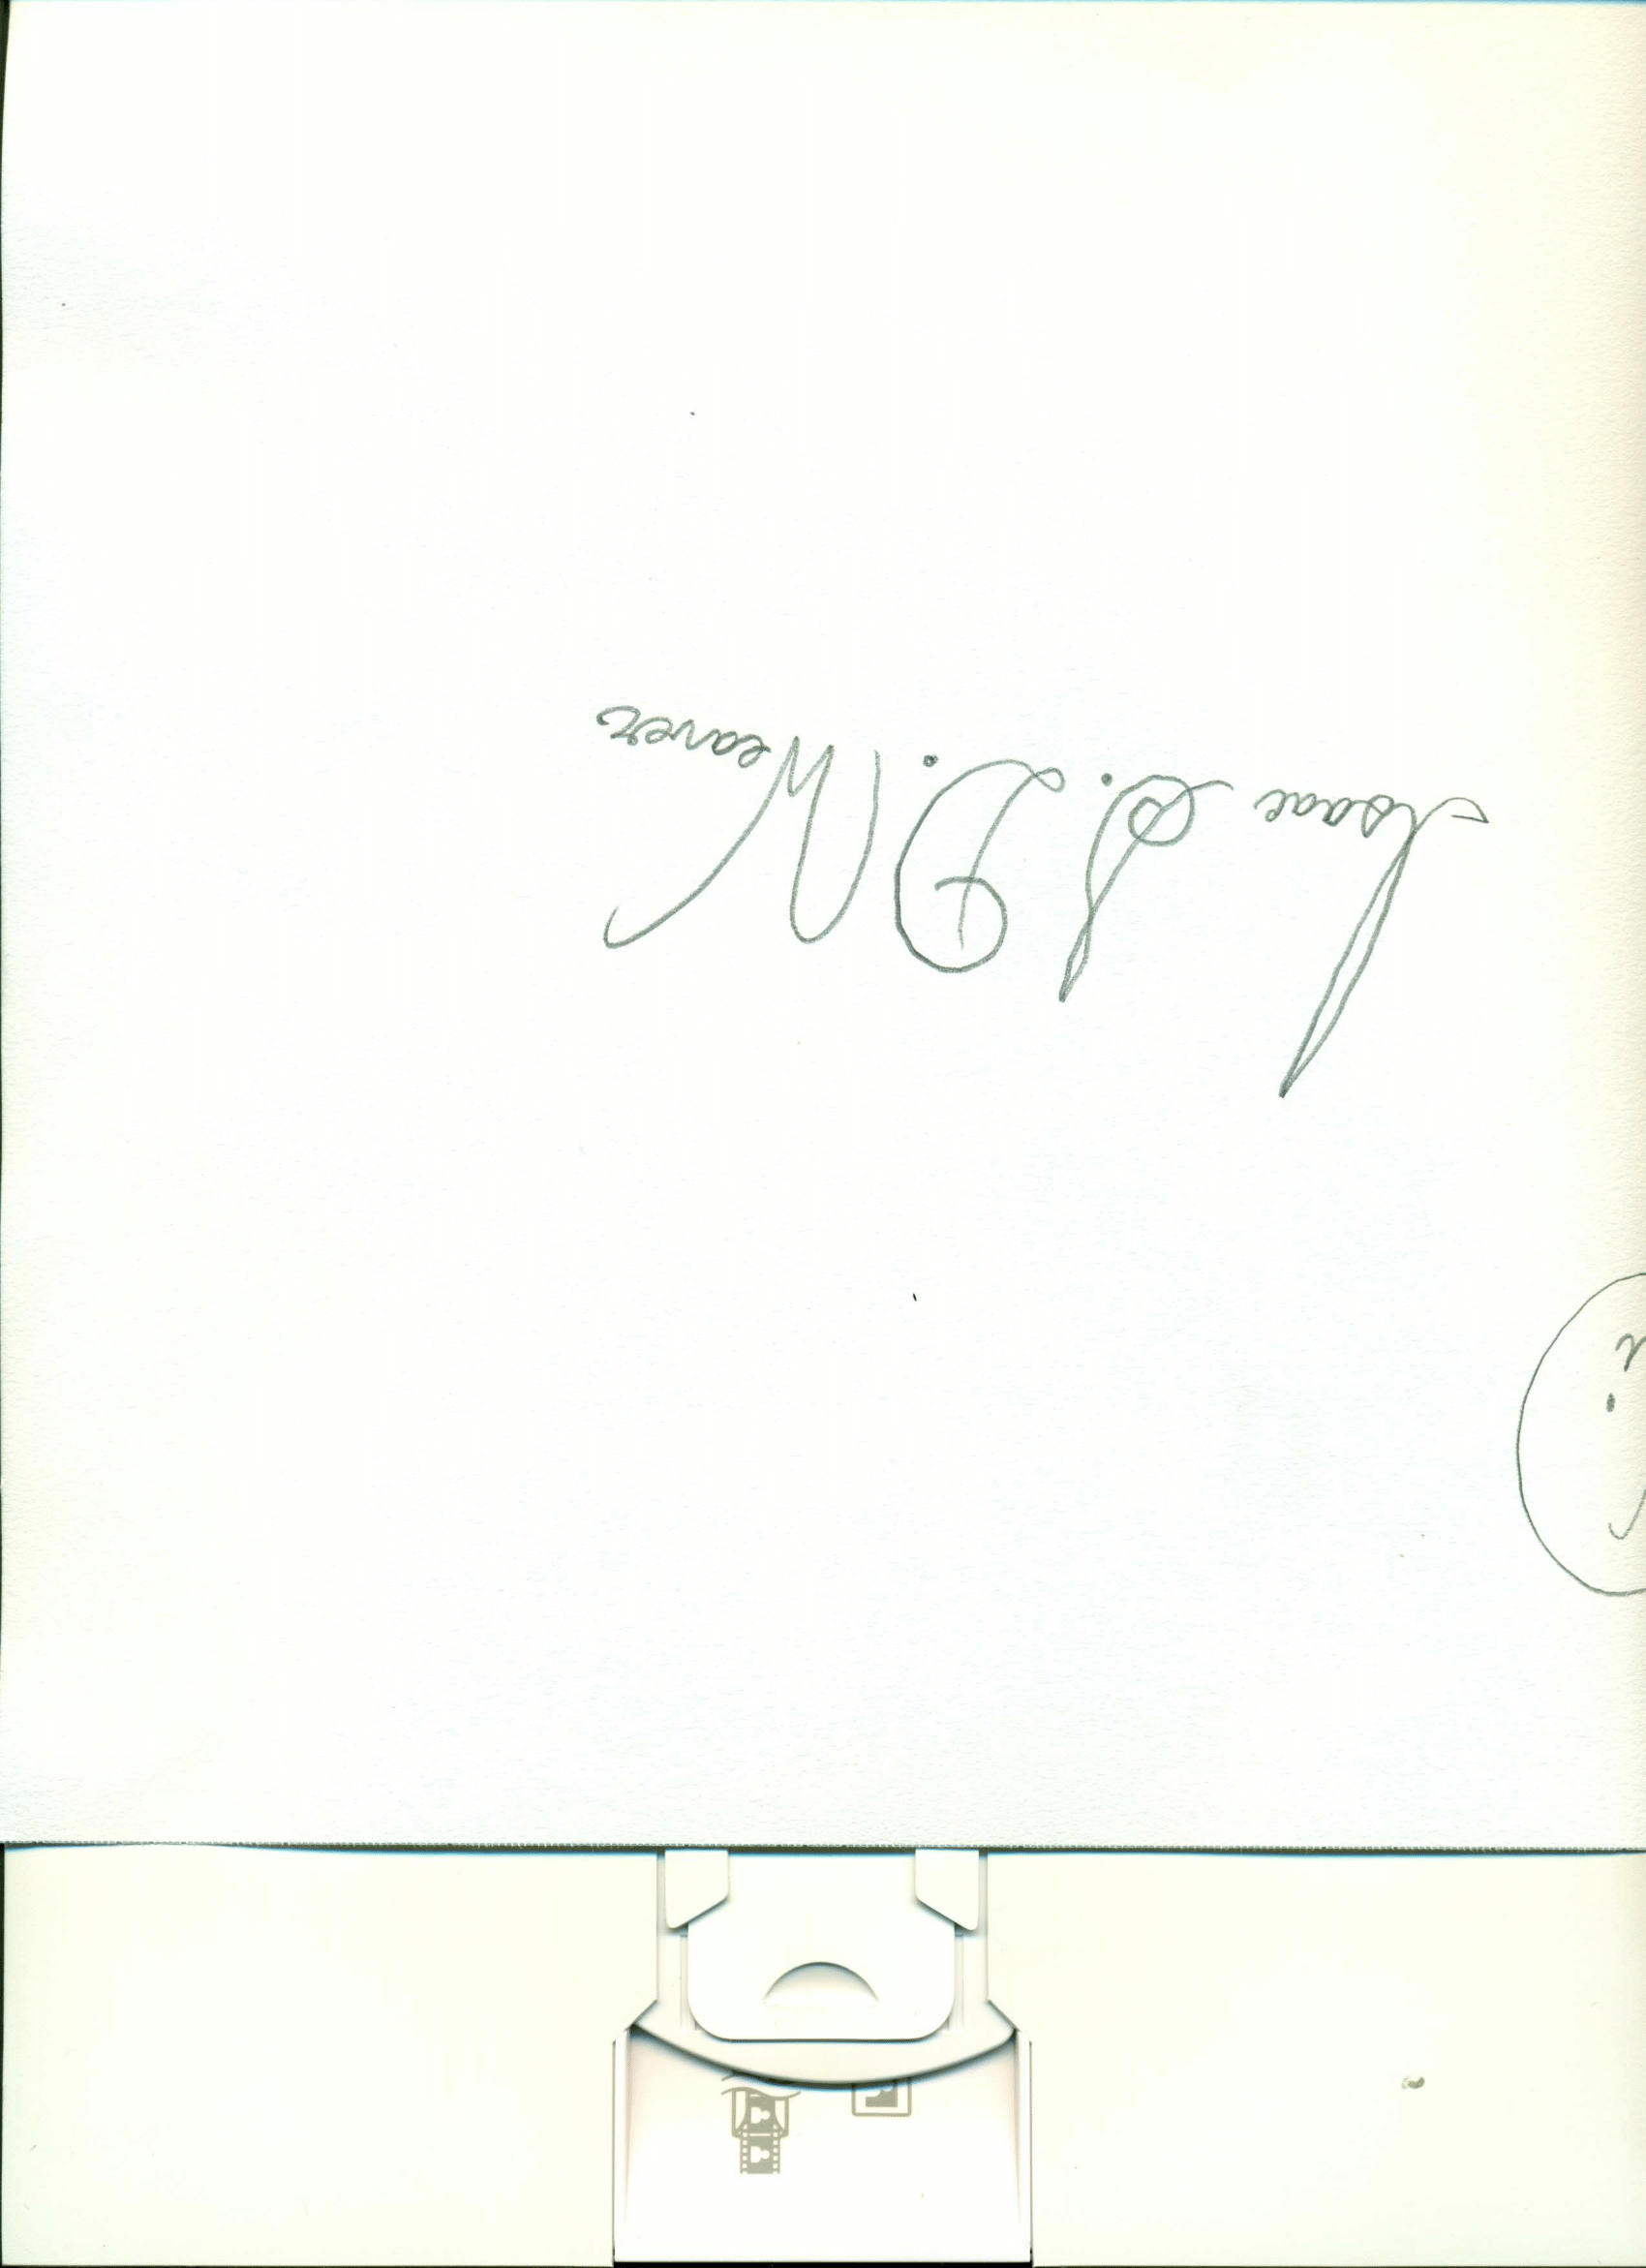 Isaac S. D. Weaver